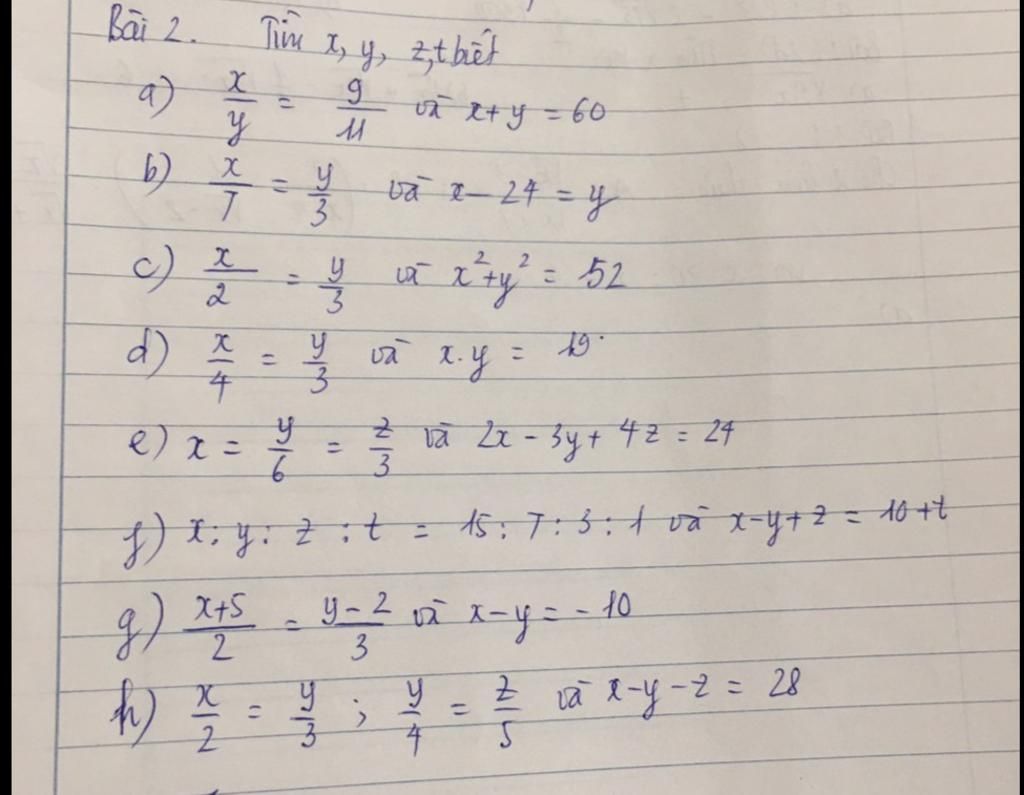 Bài 2. Tìm x, y, z, t biết
a) x/y = 9/11 và x + y = 60
b) x/7 = y/3 và x - 24 = y
c) x/2 = y/3 và x² + y² = 52
d) x/4 = y/3 và x.y = 19
e) x = y/6 = z/3 và 2x - 3y + 4z = 24
f) x : y : z : t = 15 : 7 : 3 : 1 và x - y + z = 10 + t
g) x+5/2 = y-2/3 và x - y = -10
h) x/2 = y/3 ; y/4 = z/5 và x - y - z = 28